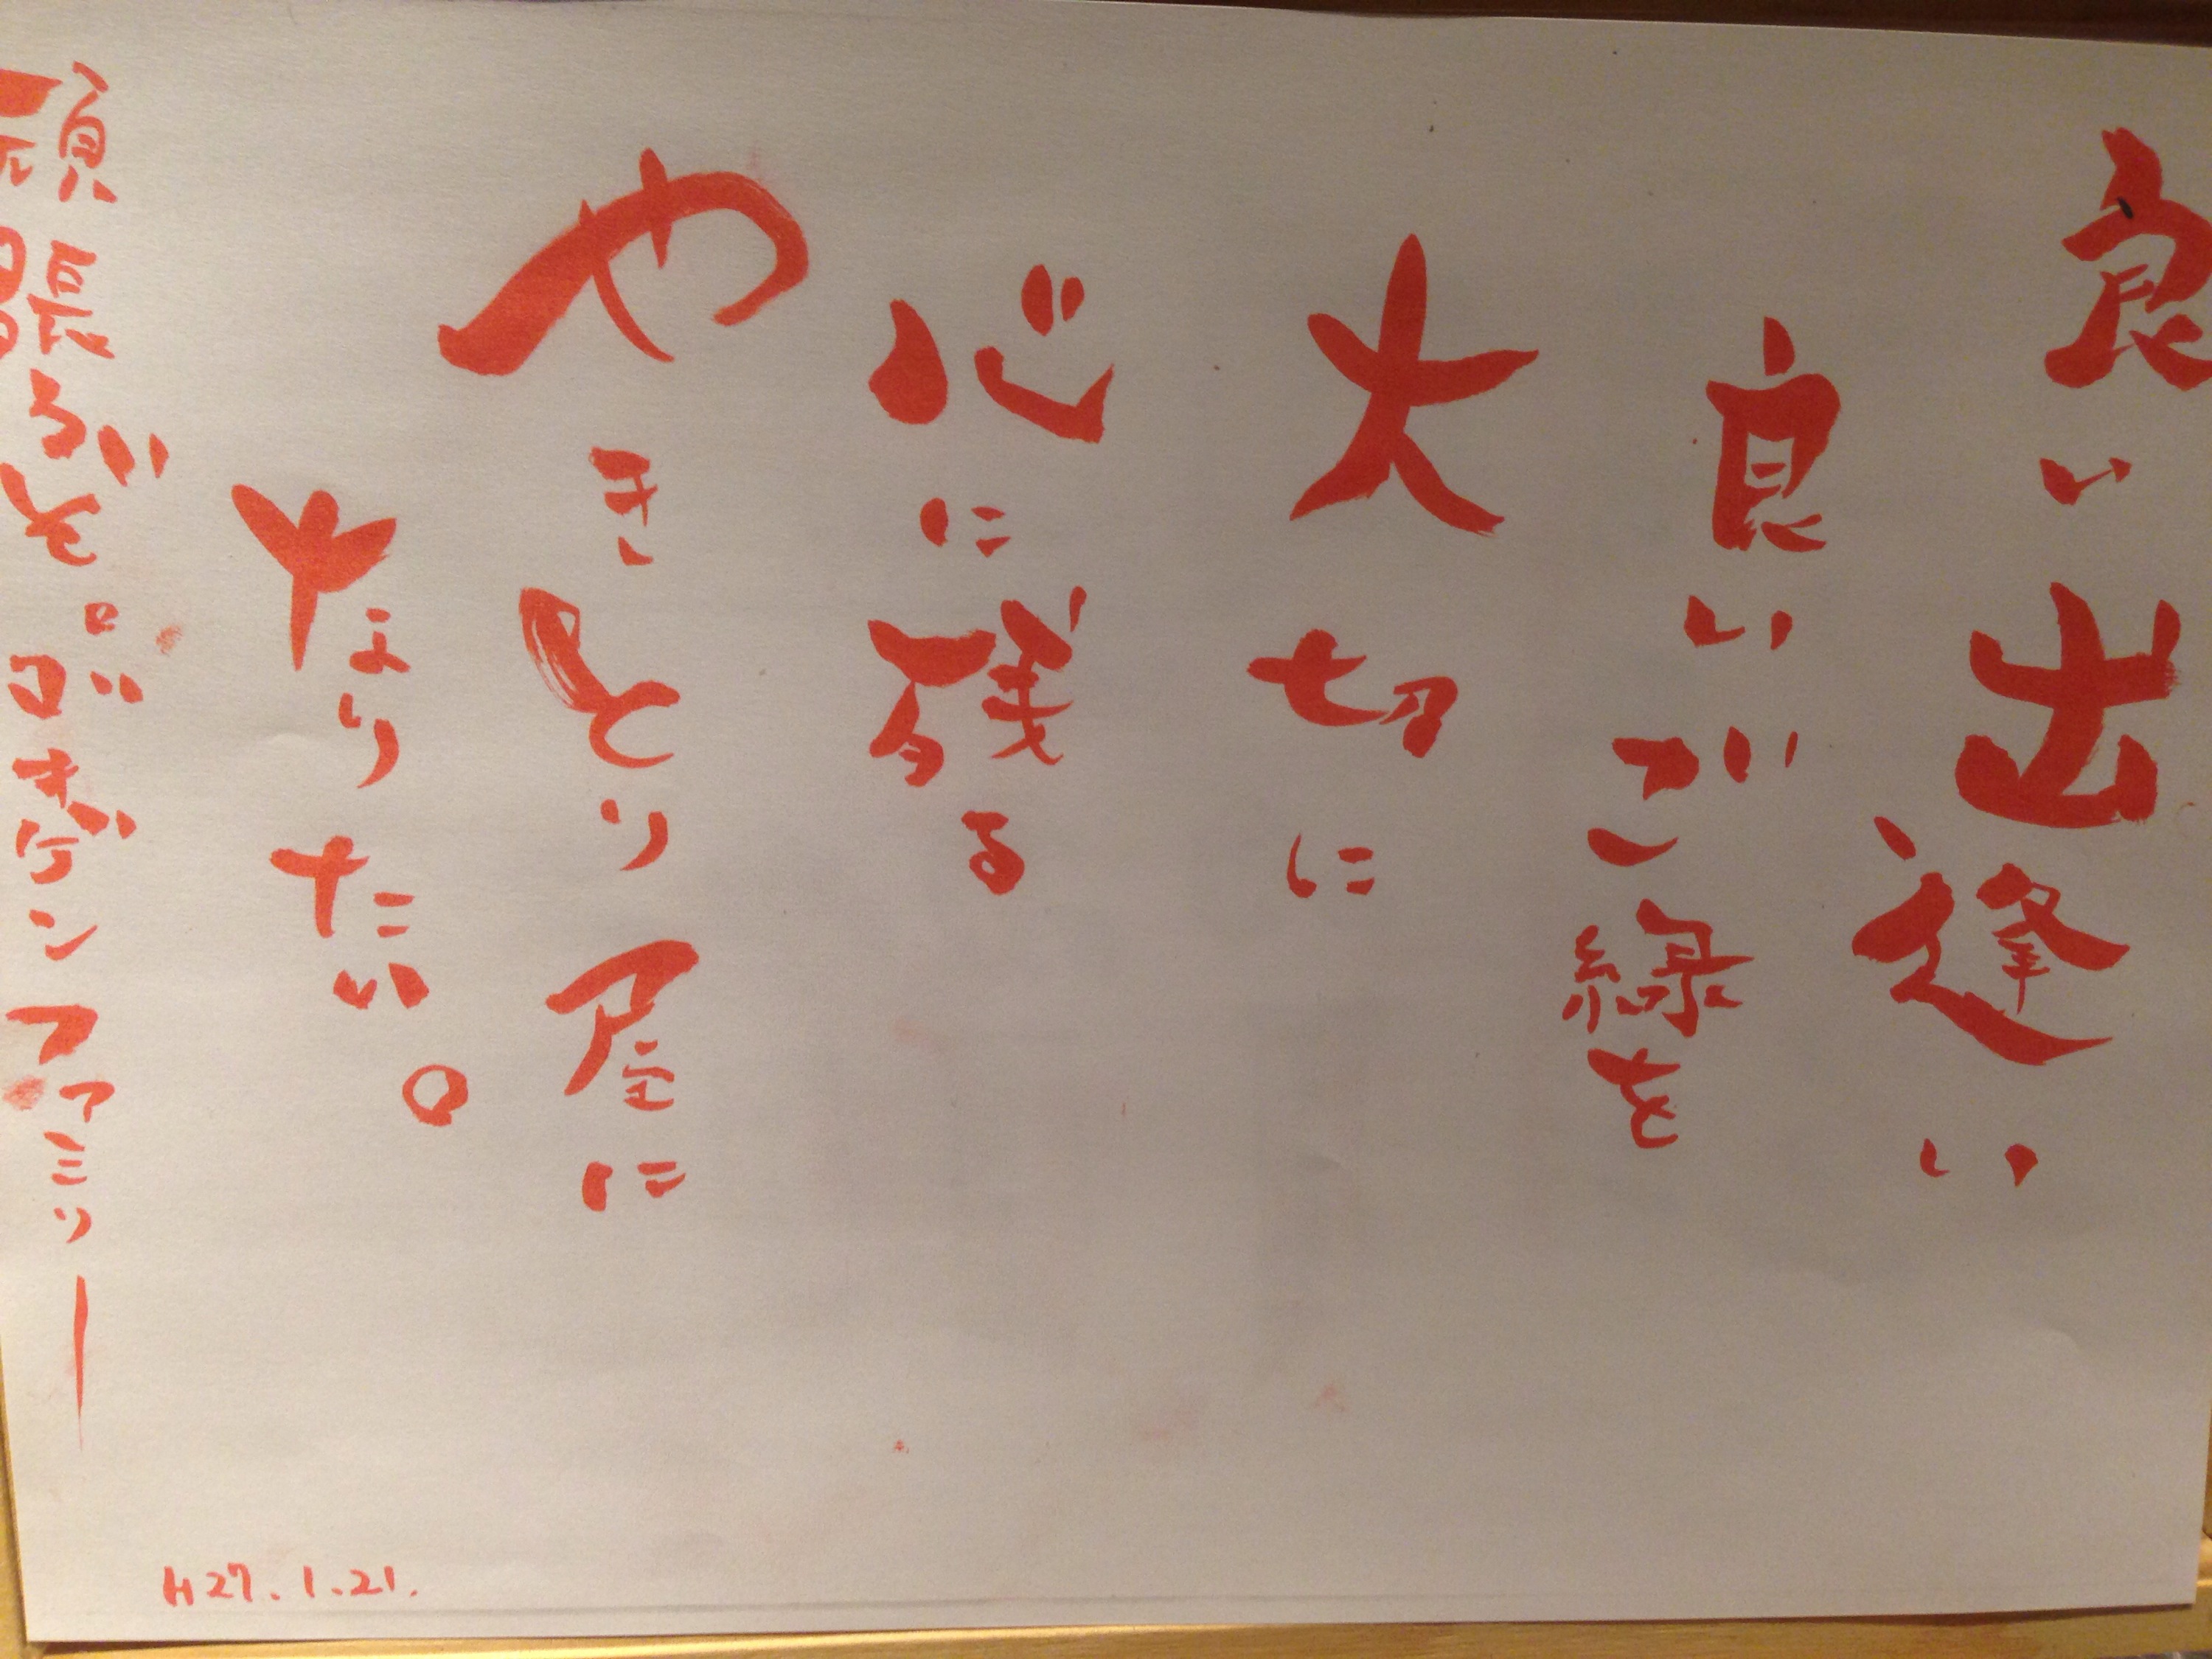 良い出逢い
良いご緑を
大切に
心に残る
やきとり屋に
なりたい。
頑張るぞ。ゴキゲンファミリー
H27.1.21.